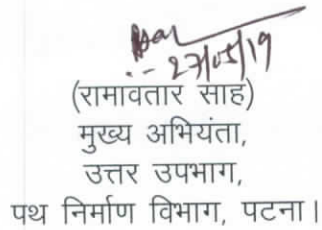 27/05/19
(रामावतार साह)
मुख्य अभियंता,
उत्तर उपभाग,
पथ निर्माण विभाग, पटना।